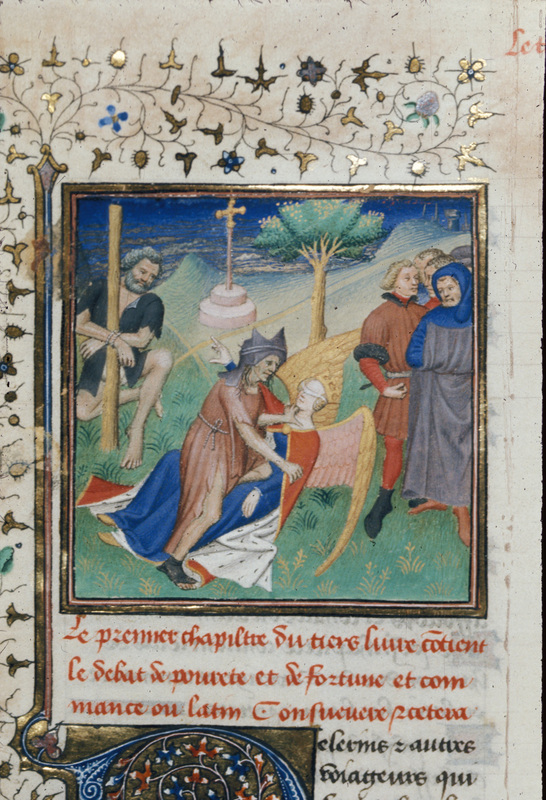 Le t
Le premier chapiltre du tiers liure cōtient
le debat de pourete et de fortune et com
mance ou latin Consueuere & cetera
elerins & autres
voiatgeurs qui